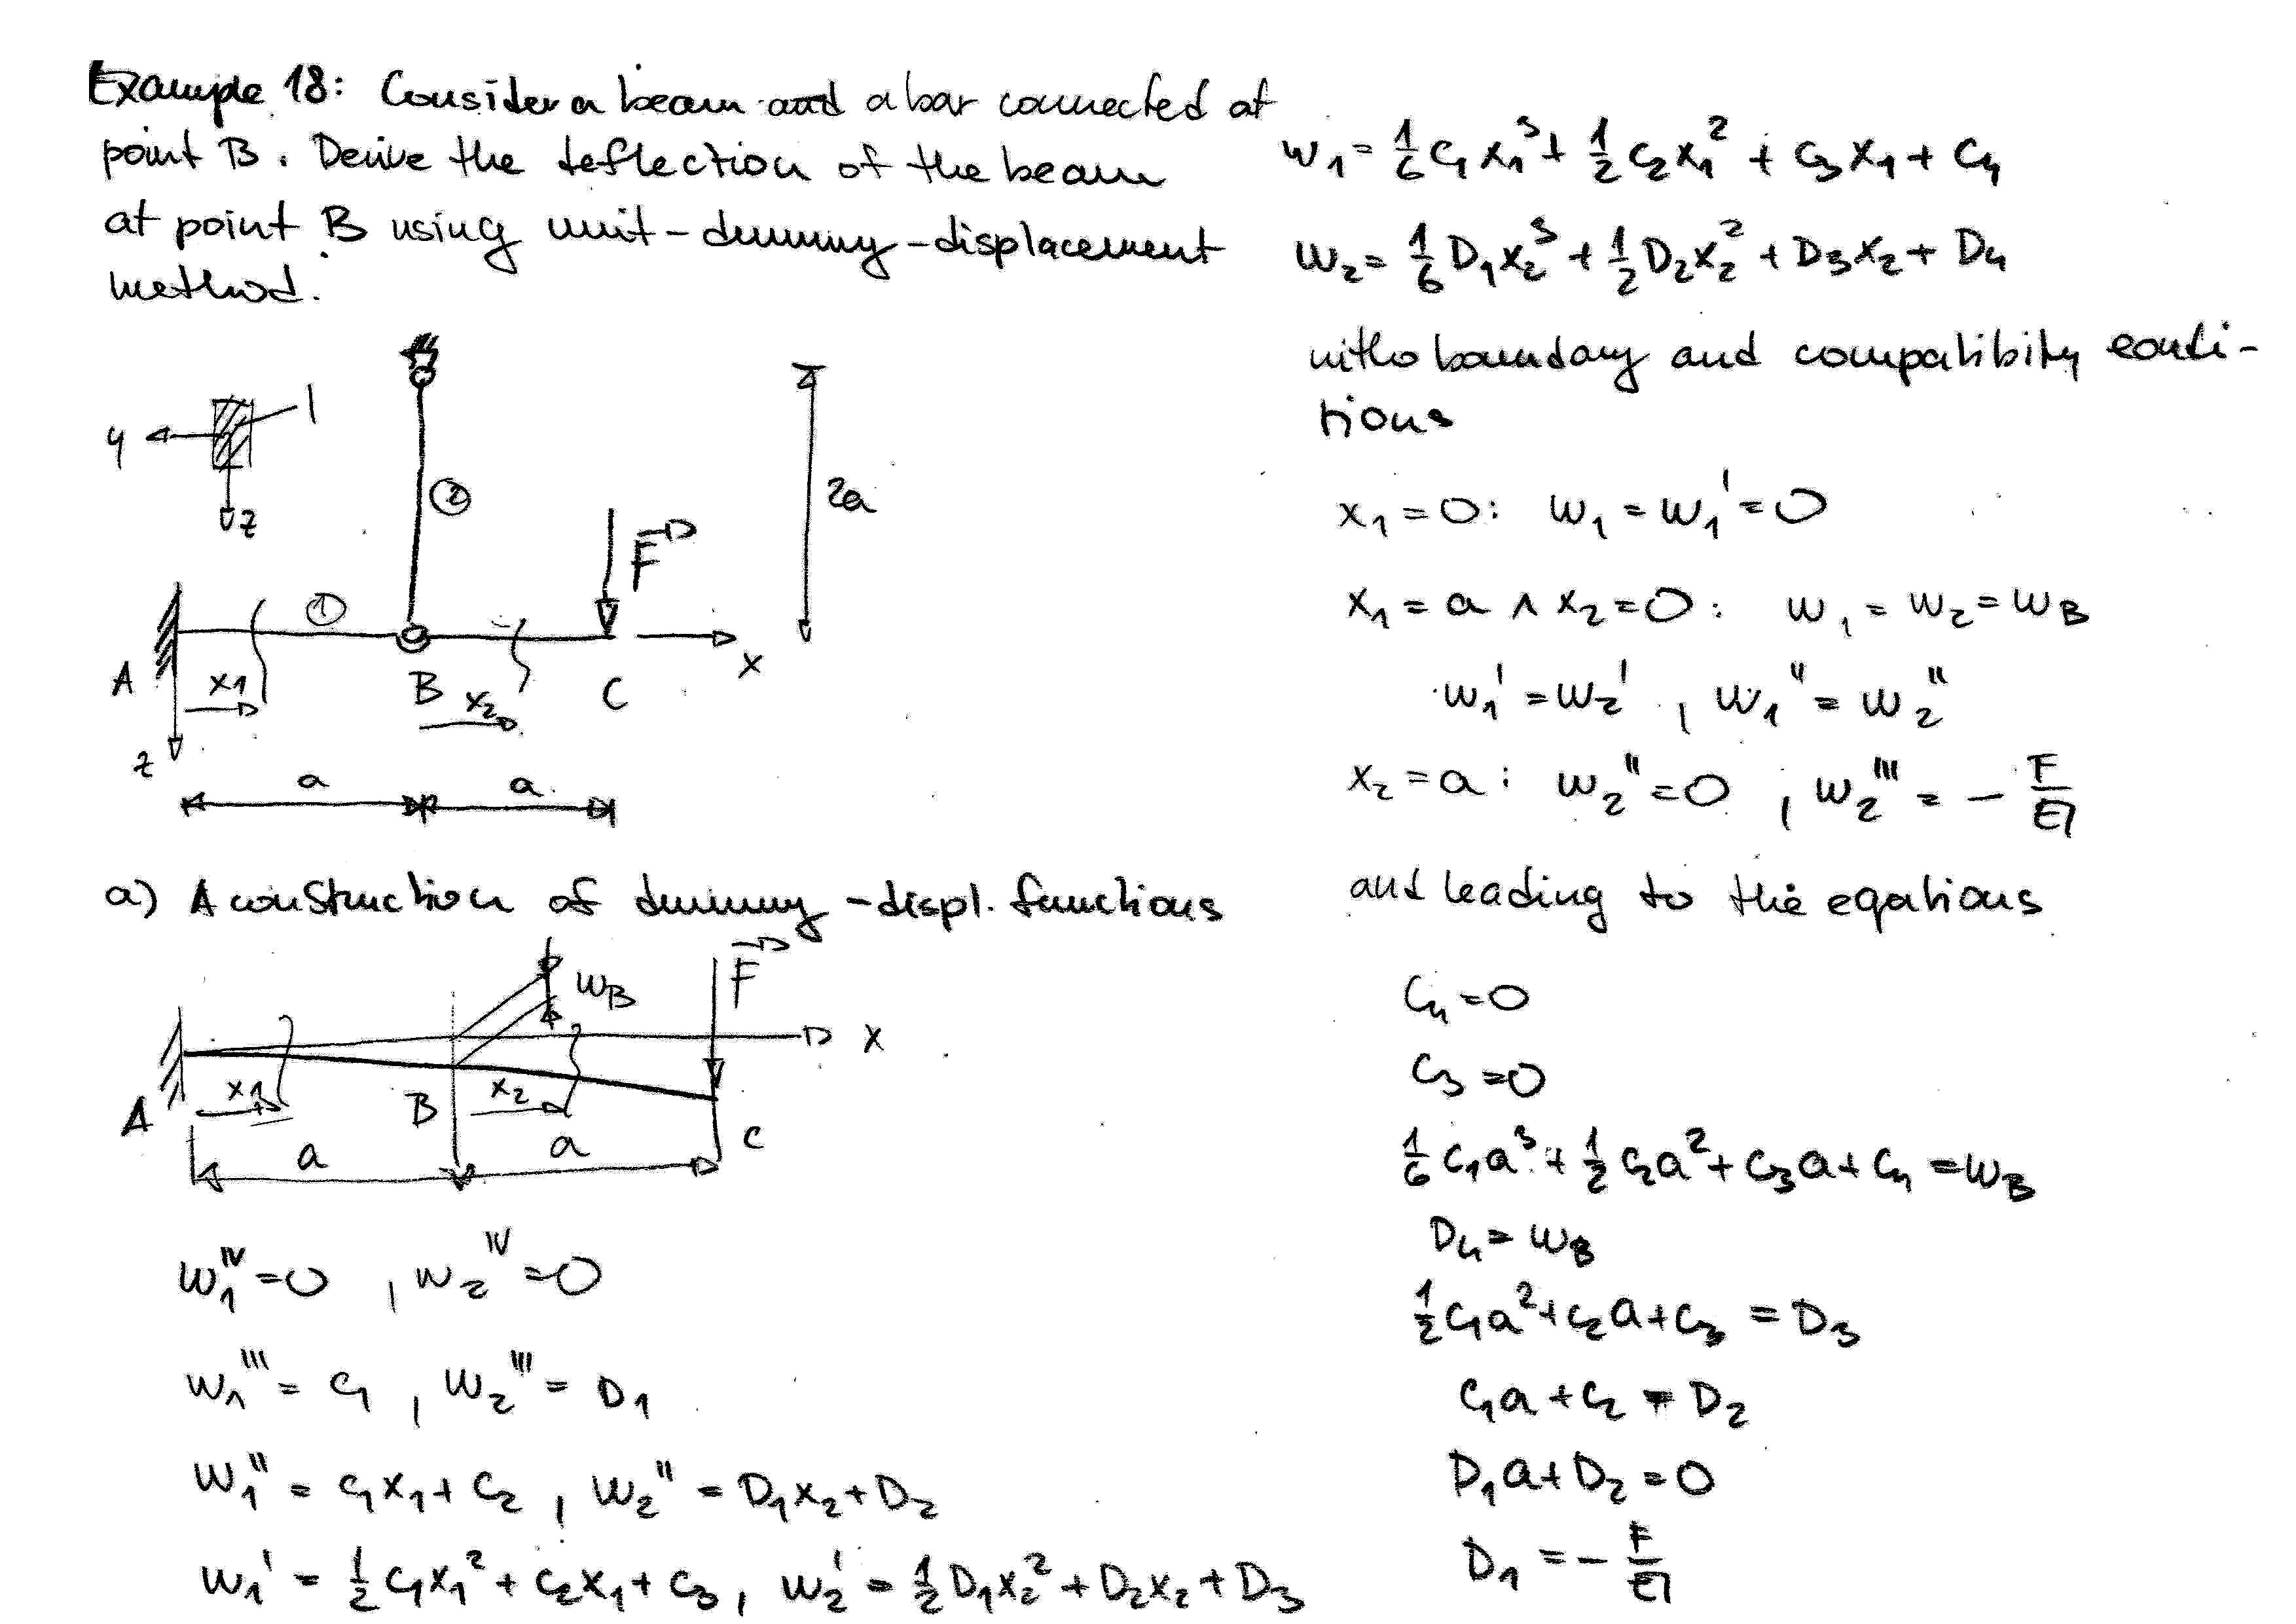 Example 18: Consider a beam and a bar connected at
point B. Derive the deflection of the beam
at point B using unit-dummy-displacement
method.
y
1
z
②
2a
①
F
A
x1
B
x2
C
x
z
a
a
a) A construction of dummy-displ. functions
wB
F
x
A
x1
B
x2
C
a
a
w₁ᴵⱽ = 0 , w₂ᴵⱽ = 0
w₁''' = C₁ , w₂''' = D₁
w₁'' = C₁x₁ + C₂ , w₂'' = D₁x₂ + D₂
w₁' = ½C₁x₁² + C₂x₁ + C₃ , w₂' = ½D₁x₂² + D₂x₂ + D₃
w₁ = 1/6 C₁x₁³ + 1/2 C₂x₁² + C₃x₁ + C₄
w₂ = 1/6 D₁x₂³ + 1/2 D₂x₂² + D₃x₂ + D₄
with boundary and compatibility condi-
tions
x₁ = 0: w₁ = w₁' = 0
x₁ = a ∧ x₂ = 0: w₁ = w₂ = wB
w₁' = w₂' , w₁'' = w₂''
x₂ = a: w₂'' = 0 , w₂''' = - F/EI
and leading to the eqations
C₄ = 0
C₃ = 0
1/6 C₁a³ + 1/2 C₂a² + C₃a + C₄ = wB
D₄ = wB
1/2 C₁a² + C₂a + C₃ = D₃
C₁a + C₂ = D₂
D₁a + D₂ = 0
D₁ = - F/EI